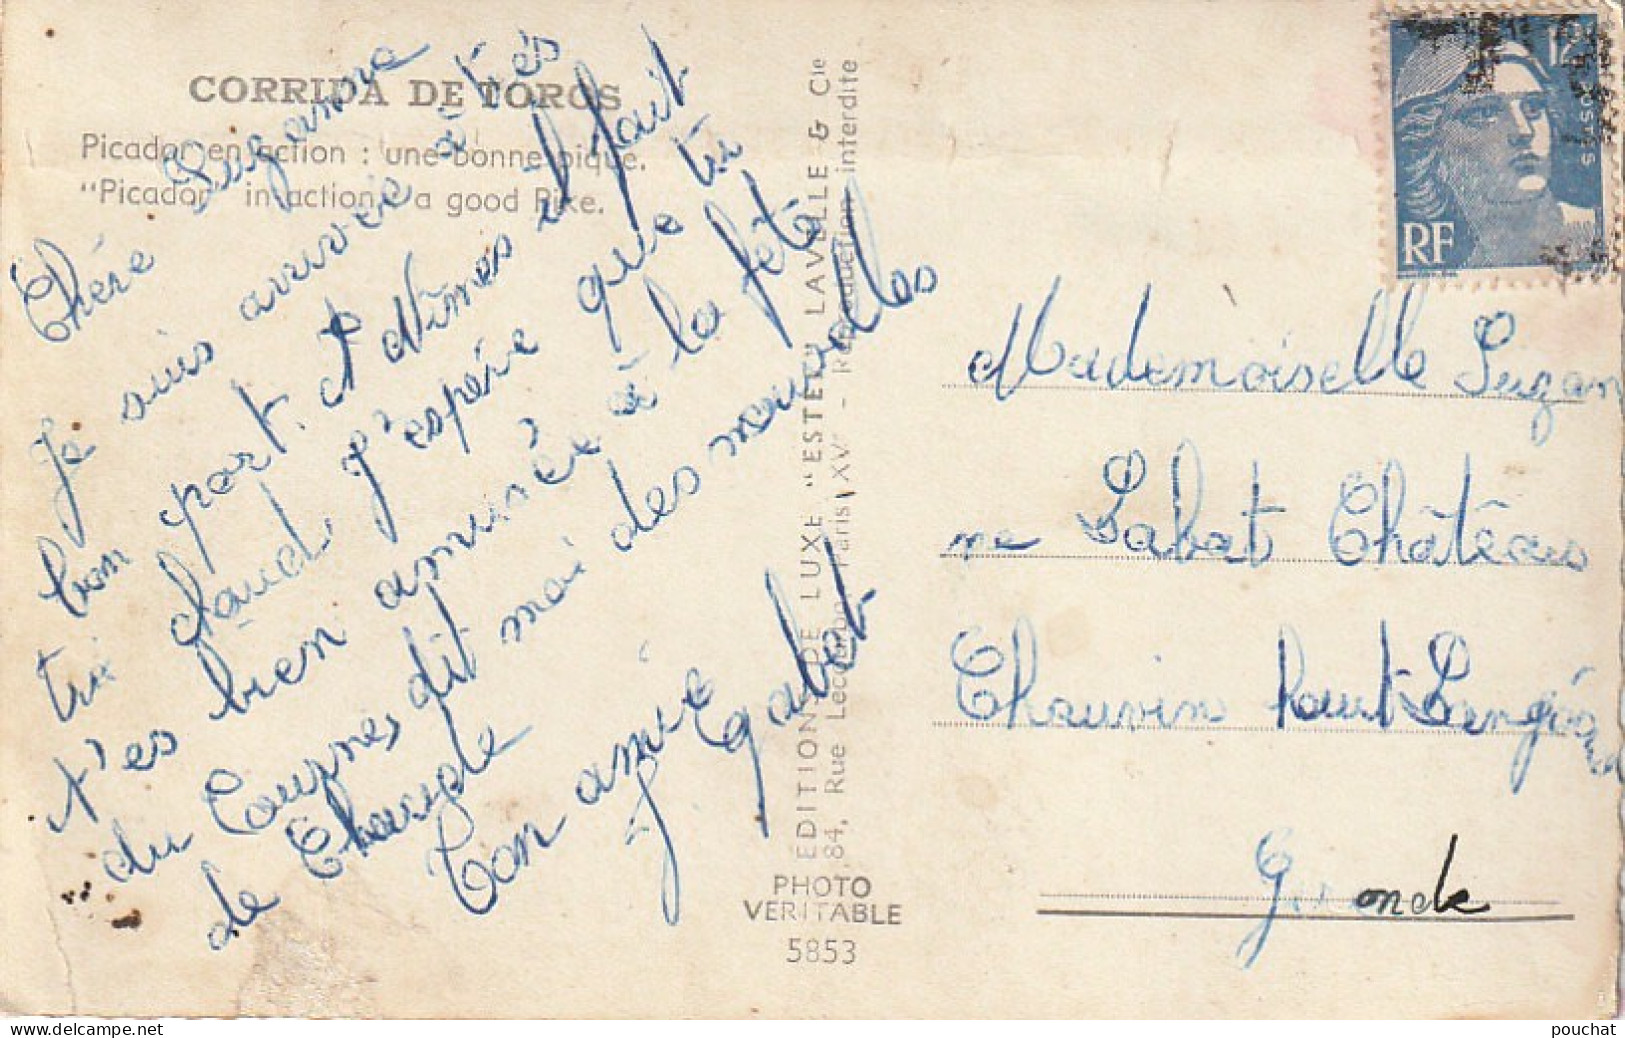 CORRIDA DE TOROS
Picador en action : une bonne pique.
"Picador" in action, a good Pike.
Chére Suzanne
Je suis arrivée a très
bon port. A Nîmes il fait
tré chaud, j'espére que tu
t'es bien amusée à la fête
du Cournes dit moi des nouvelles
de Claude
Ton amie
Gabet
EDITIONS DE LUXE "ESTEL" LAVELLE & Cie
84, Rue Lecourbe, Paris XV - Reproduction interdite
PHOTO
VERITABLE
5853
12F
POSTES
RF
Mademoiselle Suzan
ne Labat Châteas
Chauvin Saint
Gironde
pouchat